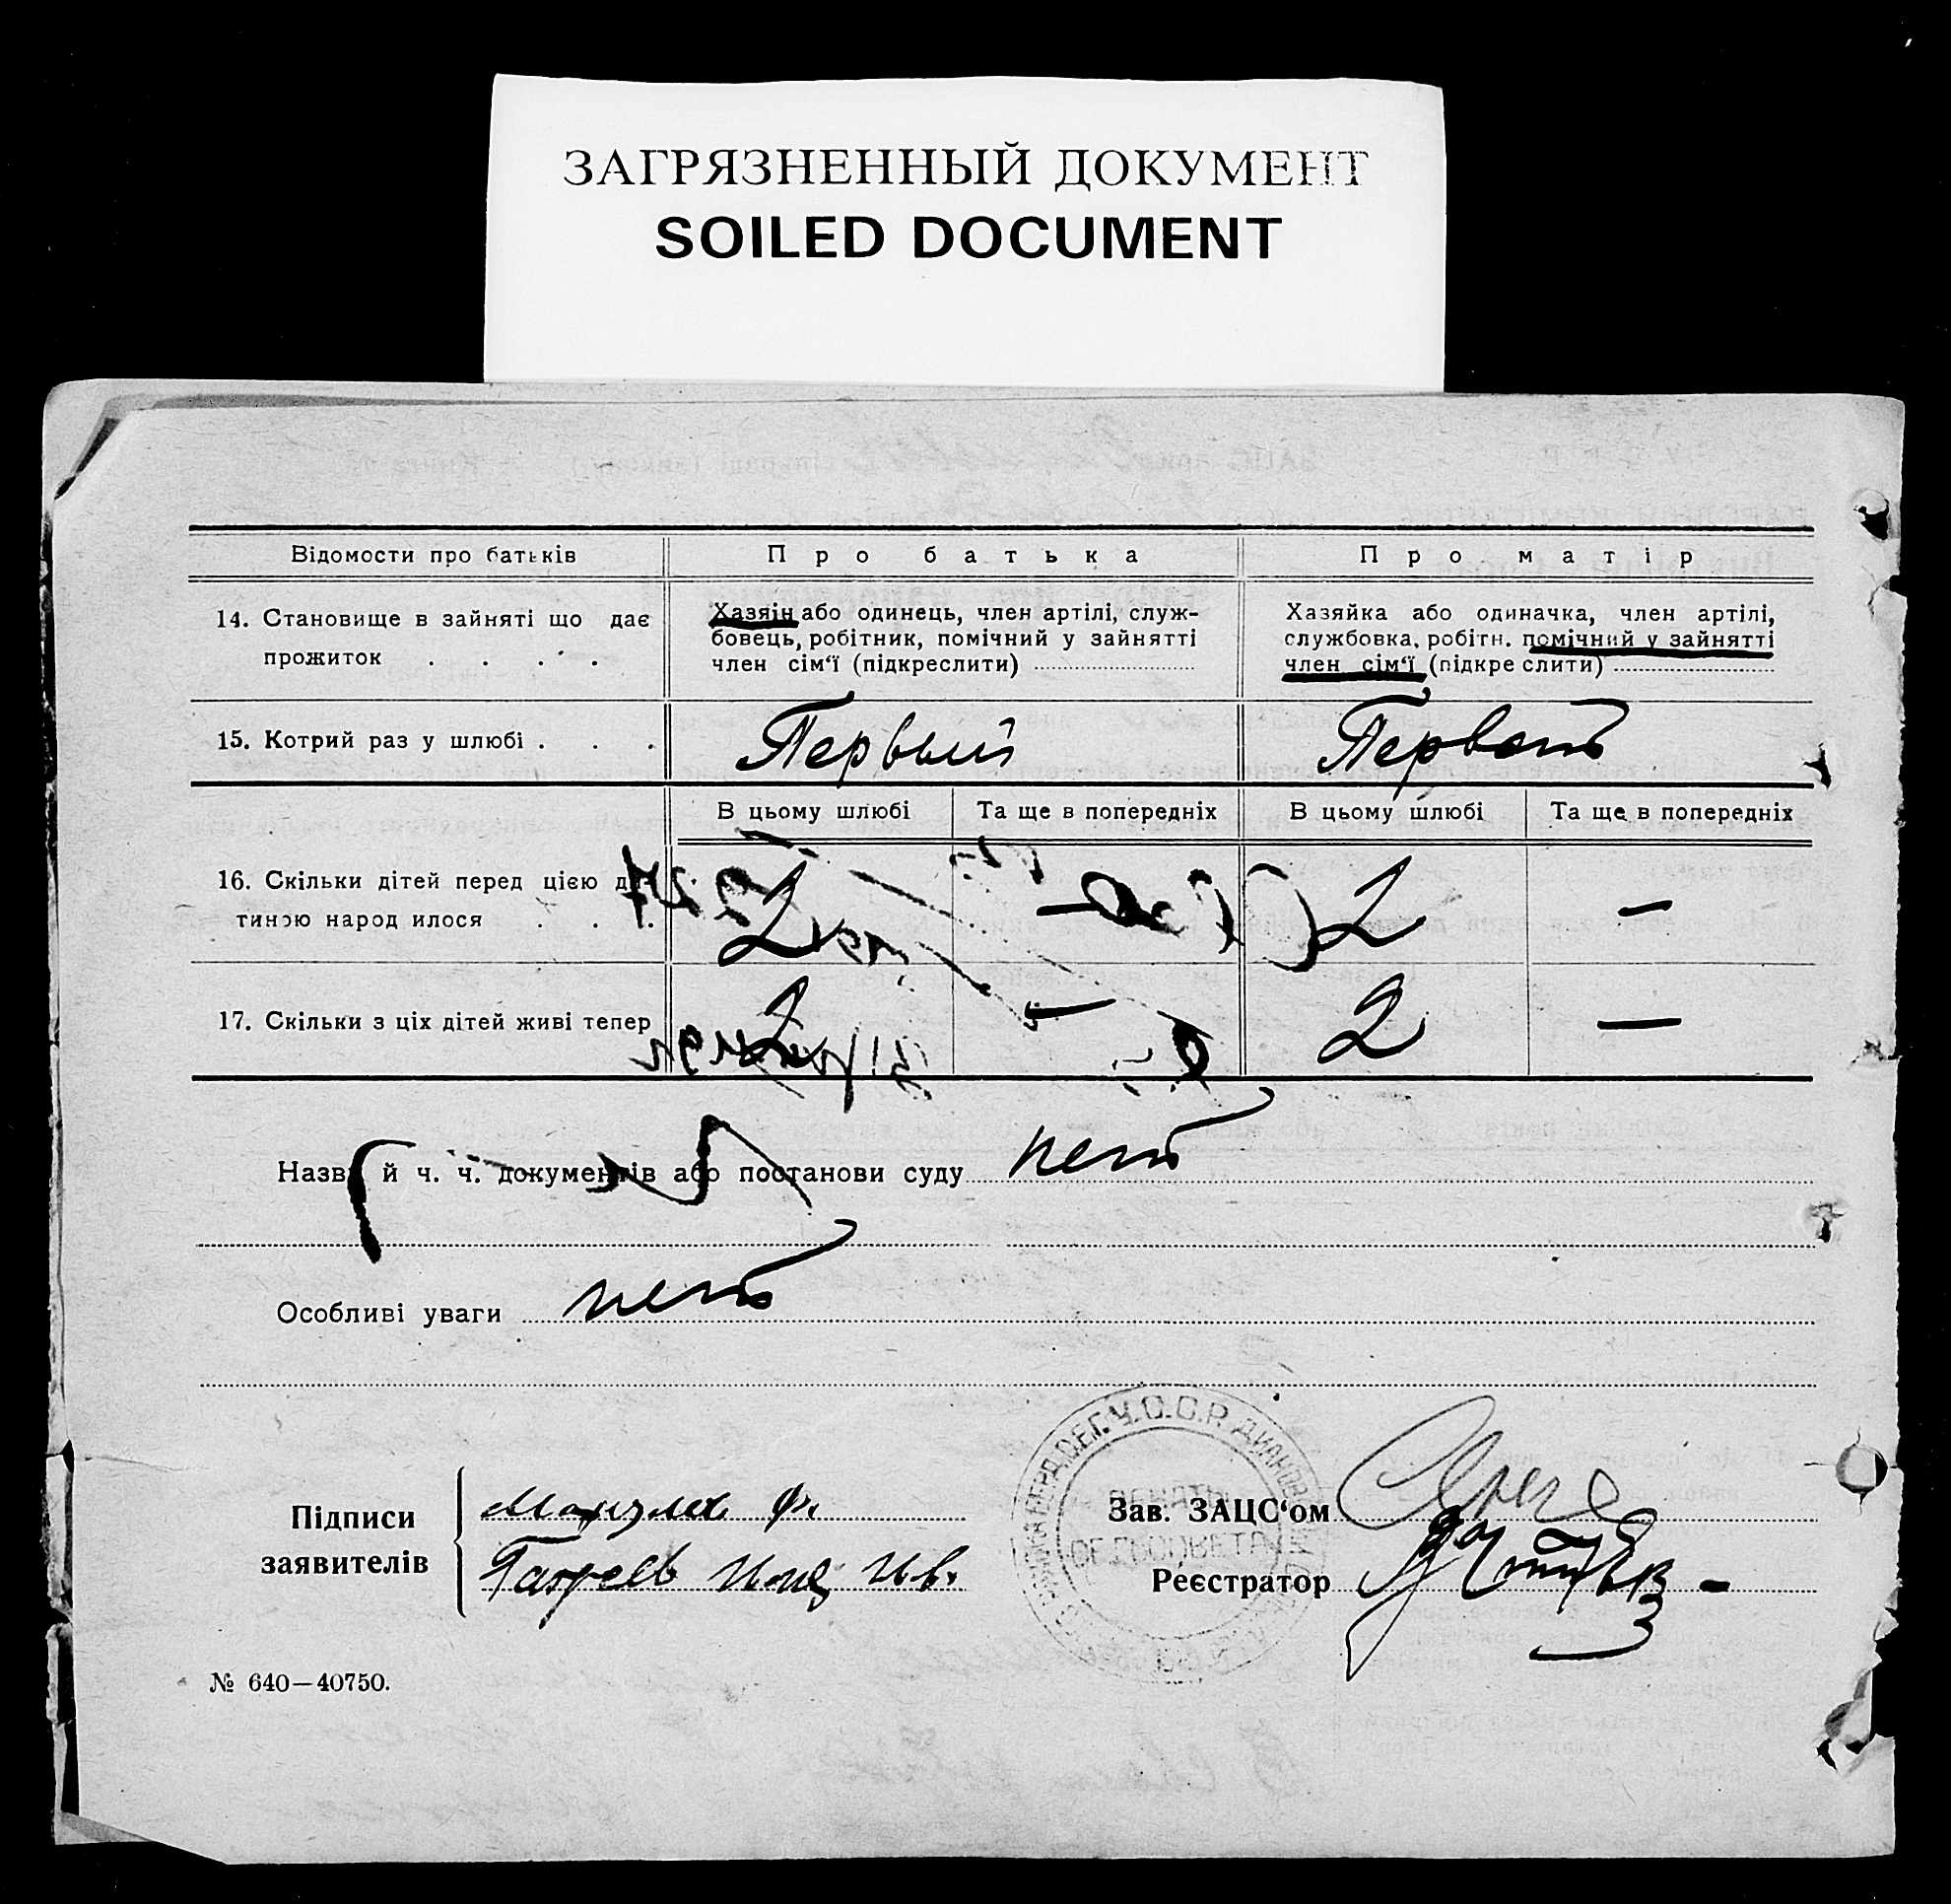 ЗАГРЯЗНЕННЫЙ ДОКУМЕНТ
SOILED DOCUMENT
Відомости про батьків
Про батька
Про матір
14. Становище в зайняті що дає
прожиток . . . .
Хазяін або одинець, член артілі, служ-
бовець, робітник, помічний у зайнятті
член сім'ї (підкреслити)
Хазяйка або одиначка, член артілі,
службовка, робітн. помічний у зайнятті
член сім'ї (підкреслити)
15. Котрий раз у шлюбі . . .
Первый
Первый
В цьому шлюбі
Та ще в попередніх
В цьому шлюбі
Та ще в попередніх
16. Скільки дітей перед цією ди-
тиною народилося . . .
2
—
2
—
17. Скільки з ціх дітей живі тепер
2
—
2
—
Назви й ч. ч. документів або постанови суду нет
Особливі уваги нет
Підписи
заявителів
Зав. ЗАЦС'ом
Реєстратор
У.С.С.Р.
№ 640—40750.